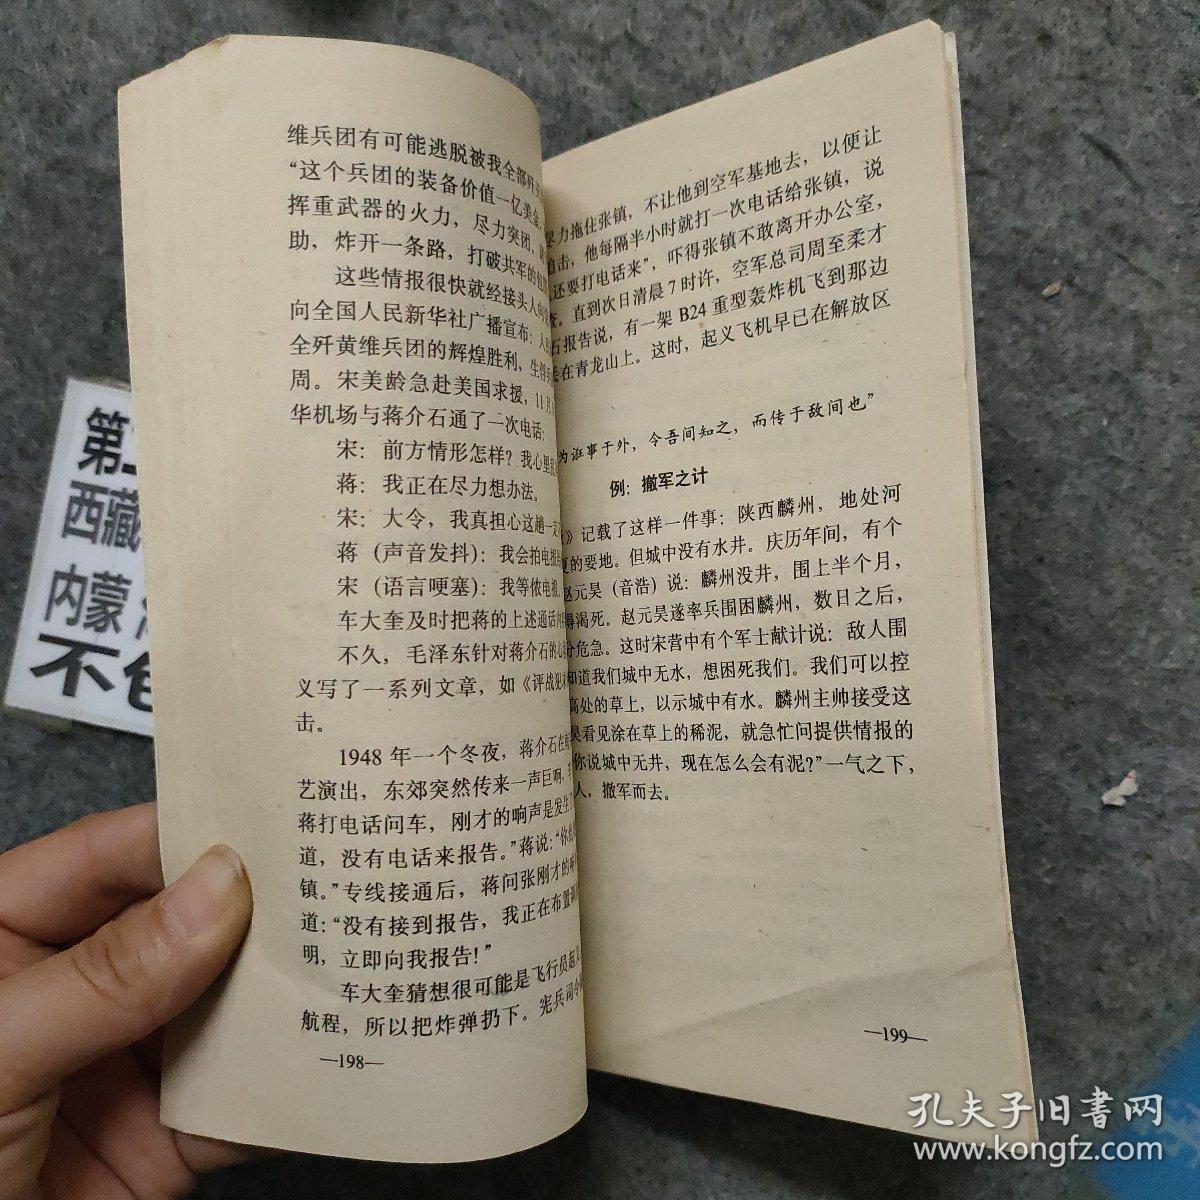 维兵团有可能逃脱被我全部歼
“这个兵团的装备价值一亿美金
挥重武器的火力，尽力突团，
助，炸开一条路，打破共军的包
这些情报很快就经接头人向
向全国人民新华社广播宣布：人
全歼黄维兵团的辉煌胜利，生俘
周。宋美龄急赴美国求援，11月
华机场与蒋介石通了一次电话：
宋：前方情形怎样？我心里
蒋：我正在尽力想办法。
宋：大令，我真担心这趟一
蒋（声音发抖）：我会拍电报
宋（语言哽塞）：我等侬电报
车大奎及时把蒋的上述通话
不久，毛泽东针对蒋介石的心
义写了一系列文章，如《评战犯
击。
1948年一个冬夜，蒋介石在
艺演出，东郊突然传来一声巨响，
蒋打电话问车，刚才的响声是发生
道，没有电话来报告。”蒋说：“你
镇。”专线接通后，蒋问张刚才的响
道：“没有接到报告，我正在布置
明，立即向我报告！”
车大奎猜想很可能是飞行员起
航程，所以把炸弹扔下。宪兵司令
—198—
尽力拖住张镇，不让他到空军基地去，以便让
追击，他每隔半小时就打一次电话给张镇，说
还要打电话来”，吓得张镇不敢离开办公室，
。直到次日清晨7时许，空军总司周至柔才
石报告说，有一架B24重型轰炸机飞到那边
在青龙山上。这时，起义飞机早已在解放区
为诳事于外，令吾间知之，而传于敌间也”
例：撤军之计
》记载了这样一件事：陕西麟州，地处河
夏的要地。但城中没有水井。庆历年间，有个
赵元昊（音浩）说：麟州没井，围上半个月，
得渴死。赵元昊遂率兵围困麟州，数日之后，
分危急。这时宋营中有个军士献计说：敌人围
知道我们城中无水，想困死我们。我们可以控
高处的草上，以示城中有水。麟州主帅接受这
昊看见涂在草上的稀泥，就急忙问提供情报的
你说城中无井，现在怎么会有泥？”一气之下，
人，撤军而去。
—199—
第
西藏
内蒙
不包
孔夫子旧书网
www.kongfz.com